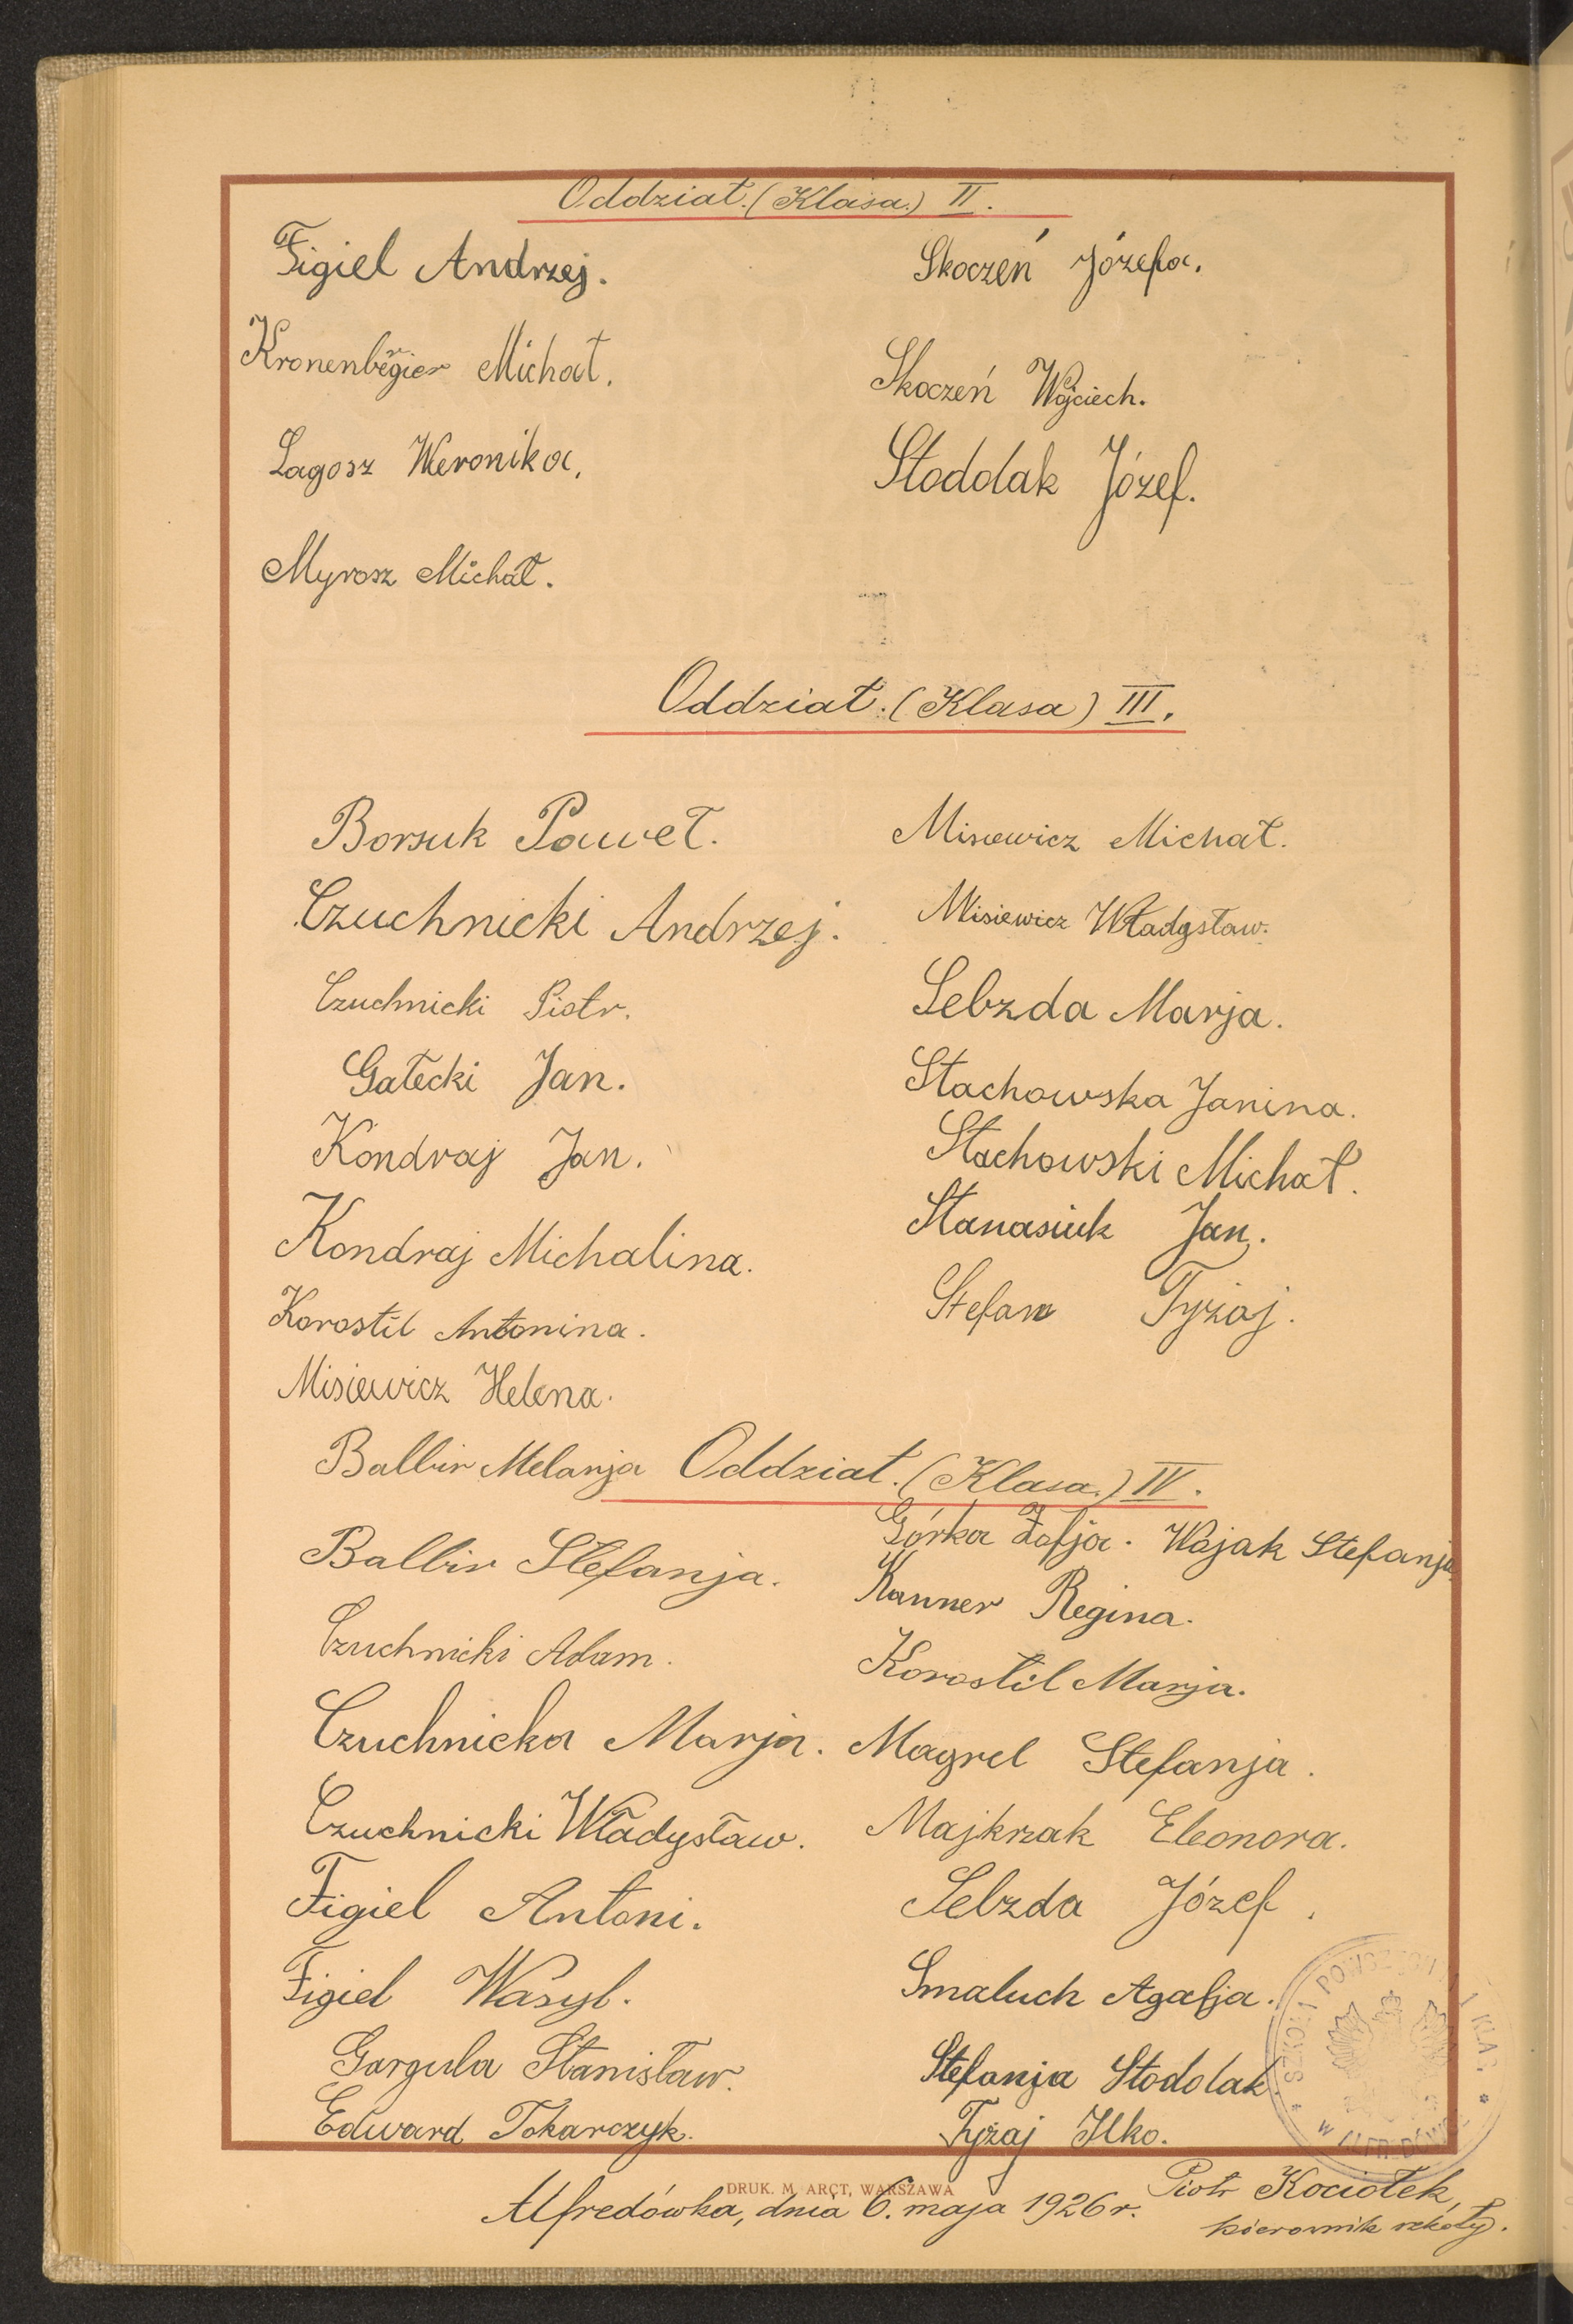 Oddział. (Klasa.) II.
Figiel Andrzej.
Kronenbergier Michał.
Lagosz Weronika.
Myrosz Michał.
Skoczeń Józefa.
Skoczeń Wojciech.
Stodolak Józef.
Oddział. (Klasa) III.
Borsuk Paweł.
Czuchnicki Andrzej.
Czuchnicki Piotr.
Gałecki Jan.
Kondraj Jan.
Kondraj Michalina.
Korostil Antonina.
Misiewicz Helena.
Misiewicz Michał.
Misiewicz Władysław.
Sebzda Marja.
Stachowska Janina.
Stachowski Michał.
Stanasiuk Jan.
Stefan Tyżaj.
Oddział. (Klasa.) IV.
Balbir Melanja
Balbir Stefanja.
Czuchnicki Adam.
Czuchnicka Marja.
Czuchnicki Władysław.
Figiel Antoni.
Figiel Wasyl.
Gargula Stanisław.
Edward Tokarczyk.
Górka Zofja. Wojak Stefanja
Kanner Regina.
Korostil Marja.
Magrel Stefanja.
Majkrzak Eleonora.
Sebzda Józef.
Smaluch Agafja.
Stefanja Stodolak
Tyżaj Ilko.
DRUK. M. ARCT, WARSZAWA
Alfredówka, dnia 6. maja 1926 r.
Piotr Kociołek,
kierownik szkoły.